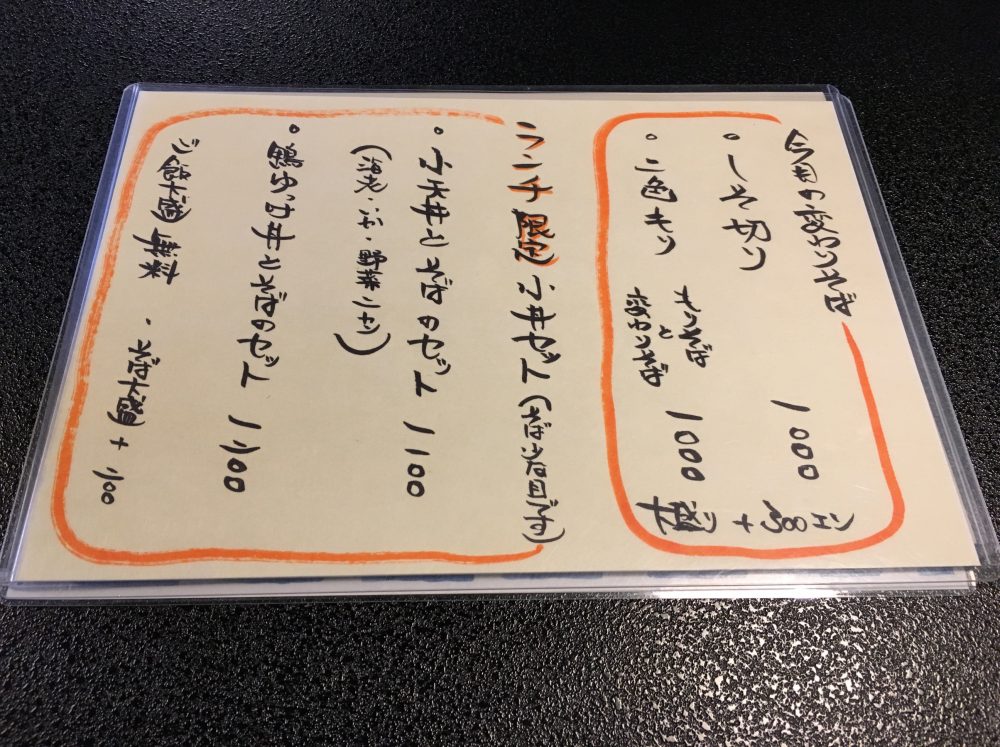 今月の変わりそば
・しそ切り 1000
・二色キリ もりそばと変わりそば 1000
大盛り +300エン
ランチ限定 小丼セット(そば少な目です)
・小天丼とそばのセット 1100
(海老・いか・野菜
・鴨ゆっけ丼とそばのセット
ご飯大盛 無料 ・そば大盛 +